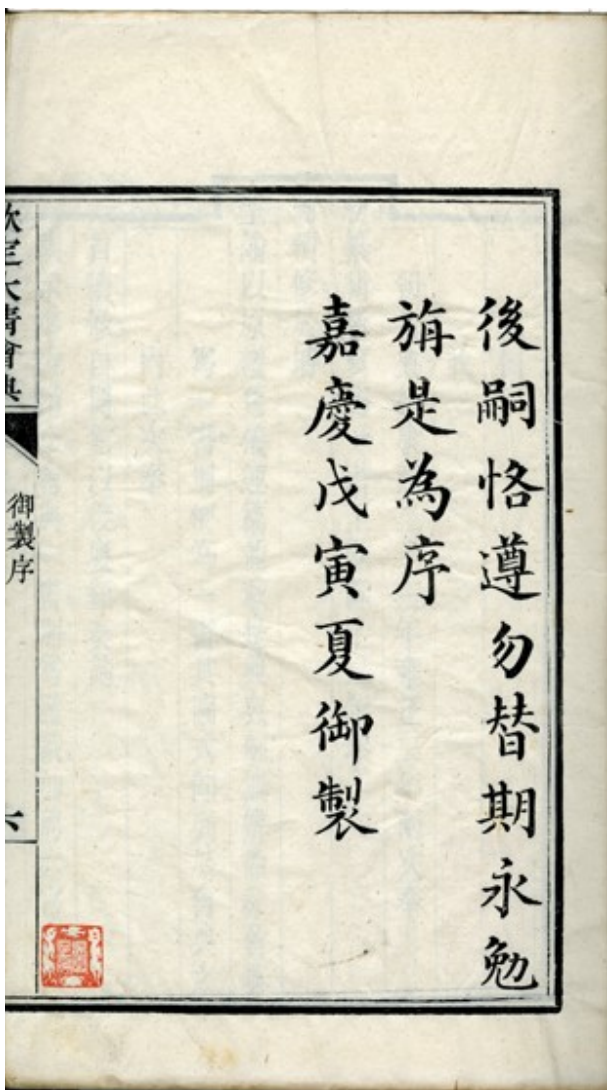 後嗣恪遵勿替期永勉
旃是為序
嘉慶戊寅夏御製
欽定大清會典
御製序
六